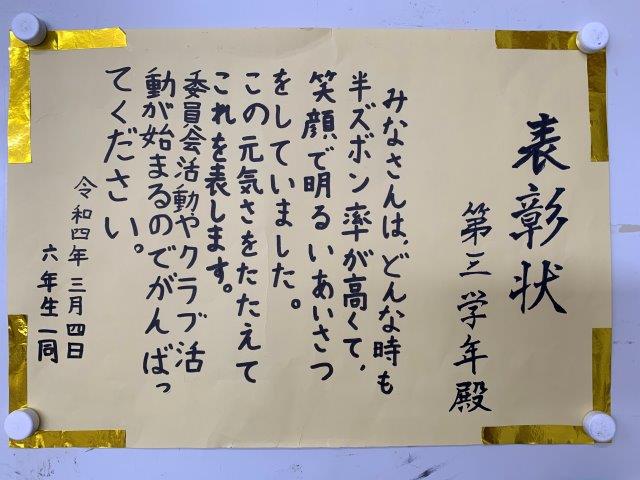 表彰状
第三学年殿
みなさんは、どんな時も
半ズボン率が高くて、
笑顔で明るいあいさつ
をしていました。
この元気さをたたえて
これを表します。
委員会活動やクラブ活
動が始まるのでがんばっ
てください。
令和四年三月四日
六年生一同